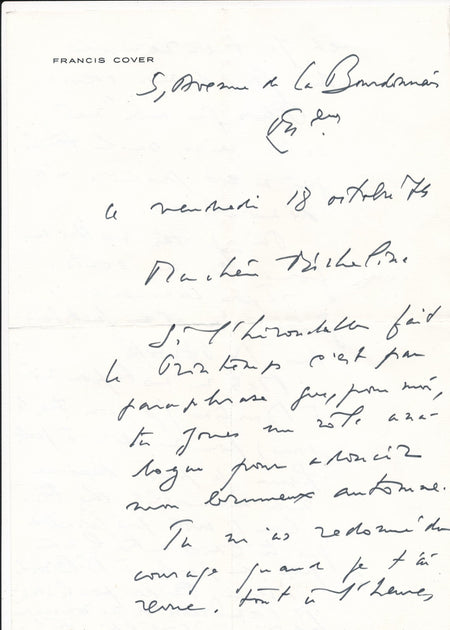 FRANCIS COVER
5, Avenue de La Bourdonnais
ce vendredi 18 octobre 74
Ma chère Micheline
Si l'hirondelle fait
le Printemps c'est par
paraphrase que, pour moi,
tu joues un rôle ana-
logue pour adoucir
mon brumeux automne.
Tu m'as redonné du
courage quand je t'ai
revue. tout à l'heure